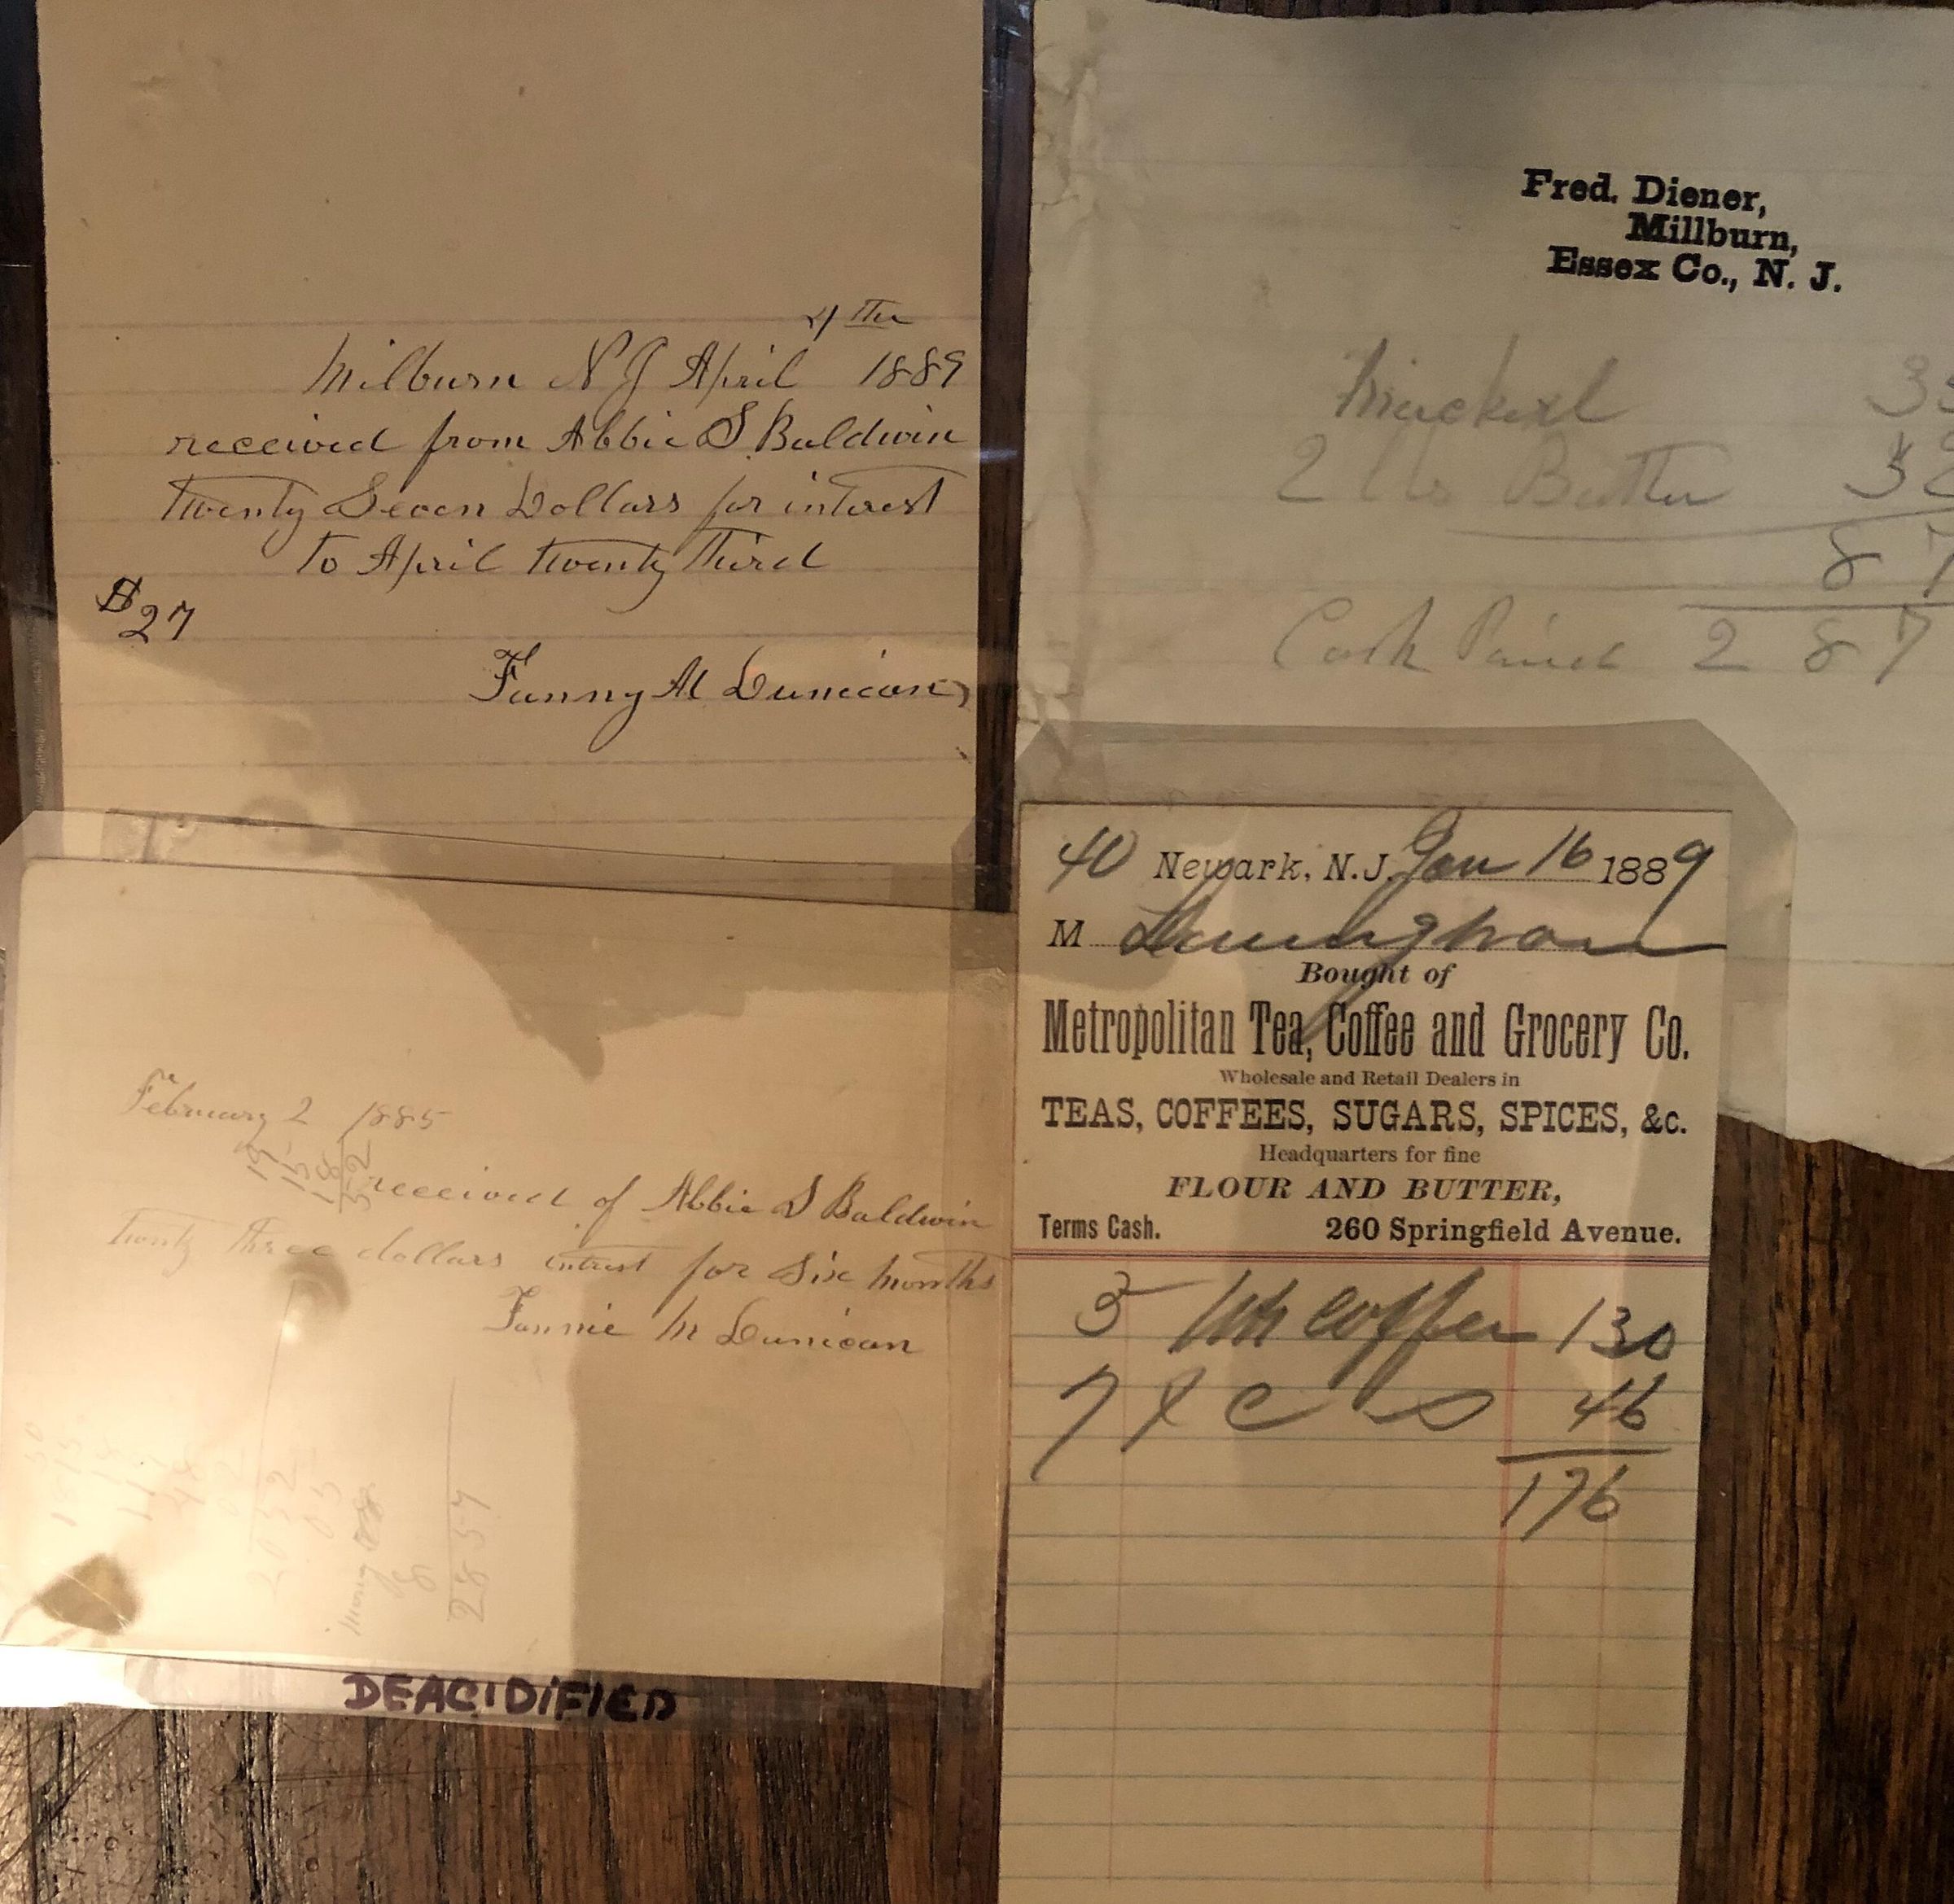 4th
Milburn N J April 1889
received from Abbie S Baldwin
twenty Seven Dollars for interest
to April twenty third
$27
Fanny M Dunican
Fred. Diener,
Millburn,
Essex Co., N. J.
Mackerel 35
2 lbs Butter
8 7
Cash Paid 2 87
February 2 1885
19
15
18
52
received of Abbie S Baldwin
twenty three dollars intrest for six months
Fannie M Dunican
28 57
DEACIDIFIED
40 Newark, N.J. Jan 16 1889
M
Bought of
Metropolitan Tea, Coffee and Grocery Co.
Wholesale and Retail Dealers in
TEAS, COFFEES, SUGARS, SPICES, &c.
Headquarters for fine
FLOUR AND BUTTER,
Terms Cash. 260 Springfield Avenue.
5 lbs Coffee 130
7 46
176